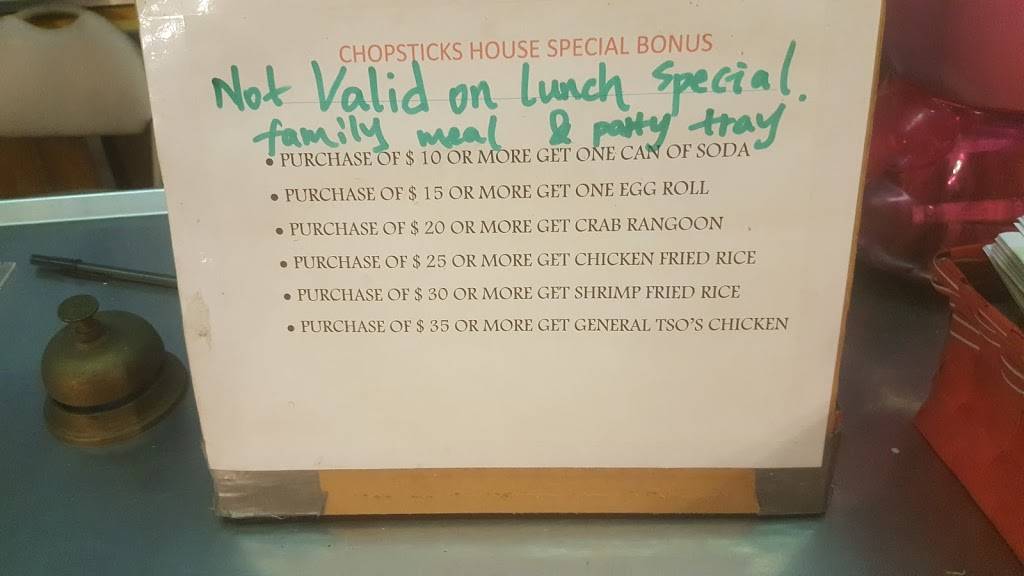 CHOPSTICKS HOUSE SPECIAL BONUS
Not Valid on lunch special.
family meal & party tray
• PURCHASE OF $ 10 OR MORE GET ONE CAN OF SODA
• PURCHASE OF $ 15 OR MORE GET ONE EGG ROLL
• PURCHASE OF $ 20 OR MORE GET CRAB RANGOON
• PURCHASE OF $ 25 OR MORE GET CHICKEN FRIED RICE
• PURCHASE OF $ 30 OR MORE GET SHRIMP FRIED RICE
• PURCHASE OF $ 35 OR MORE GET GENERAL TSO'S CHICKEN